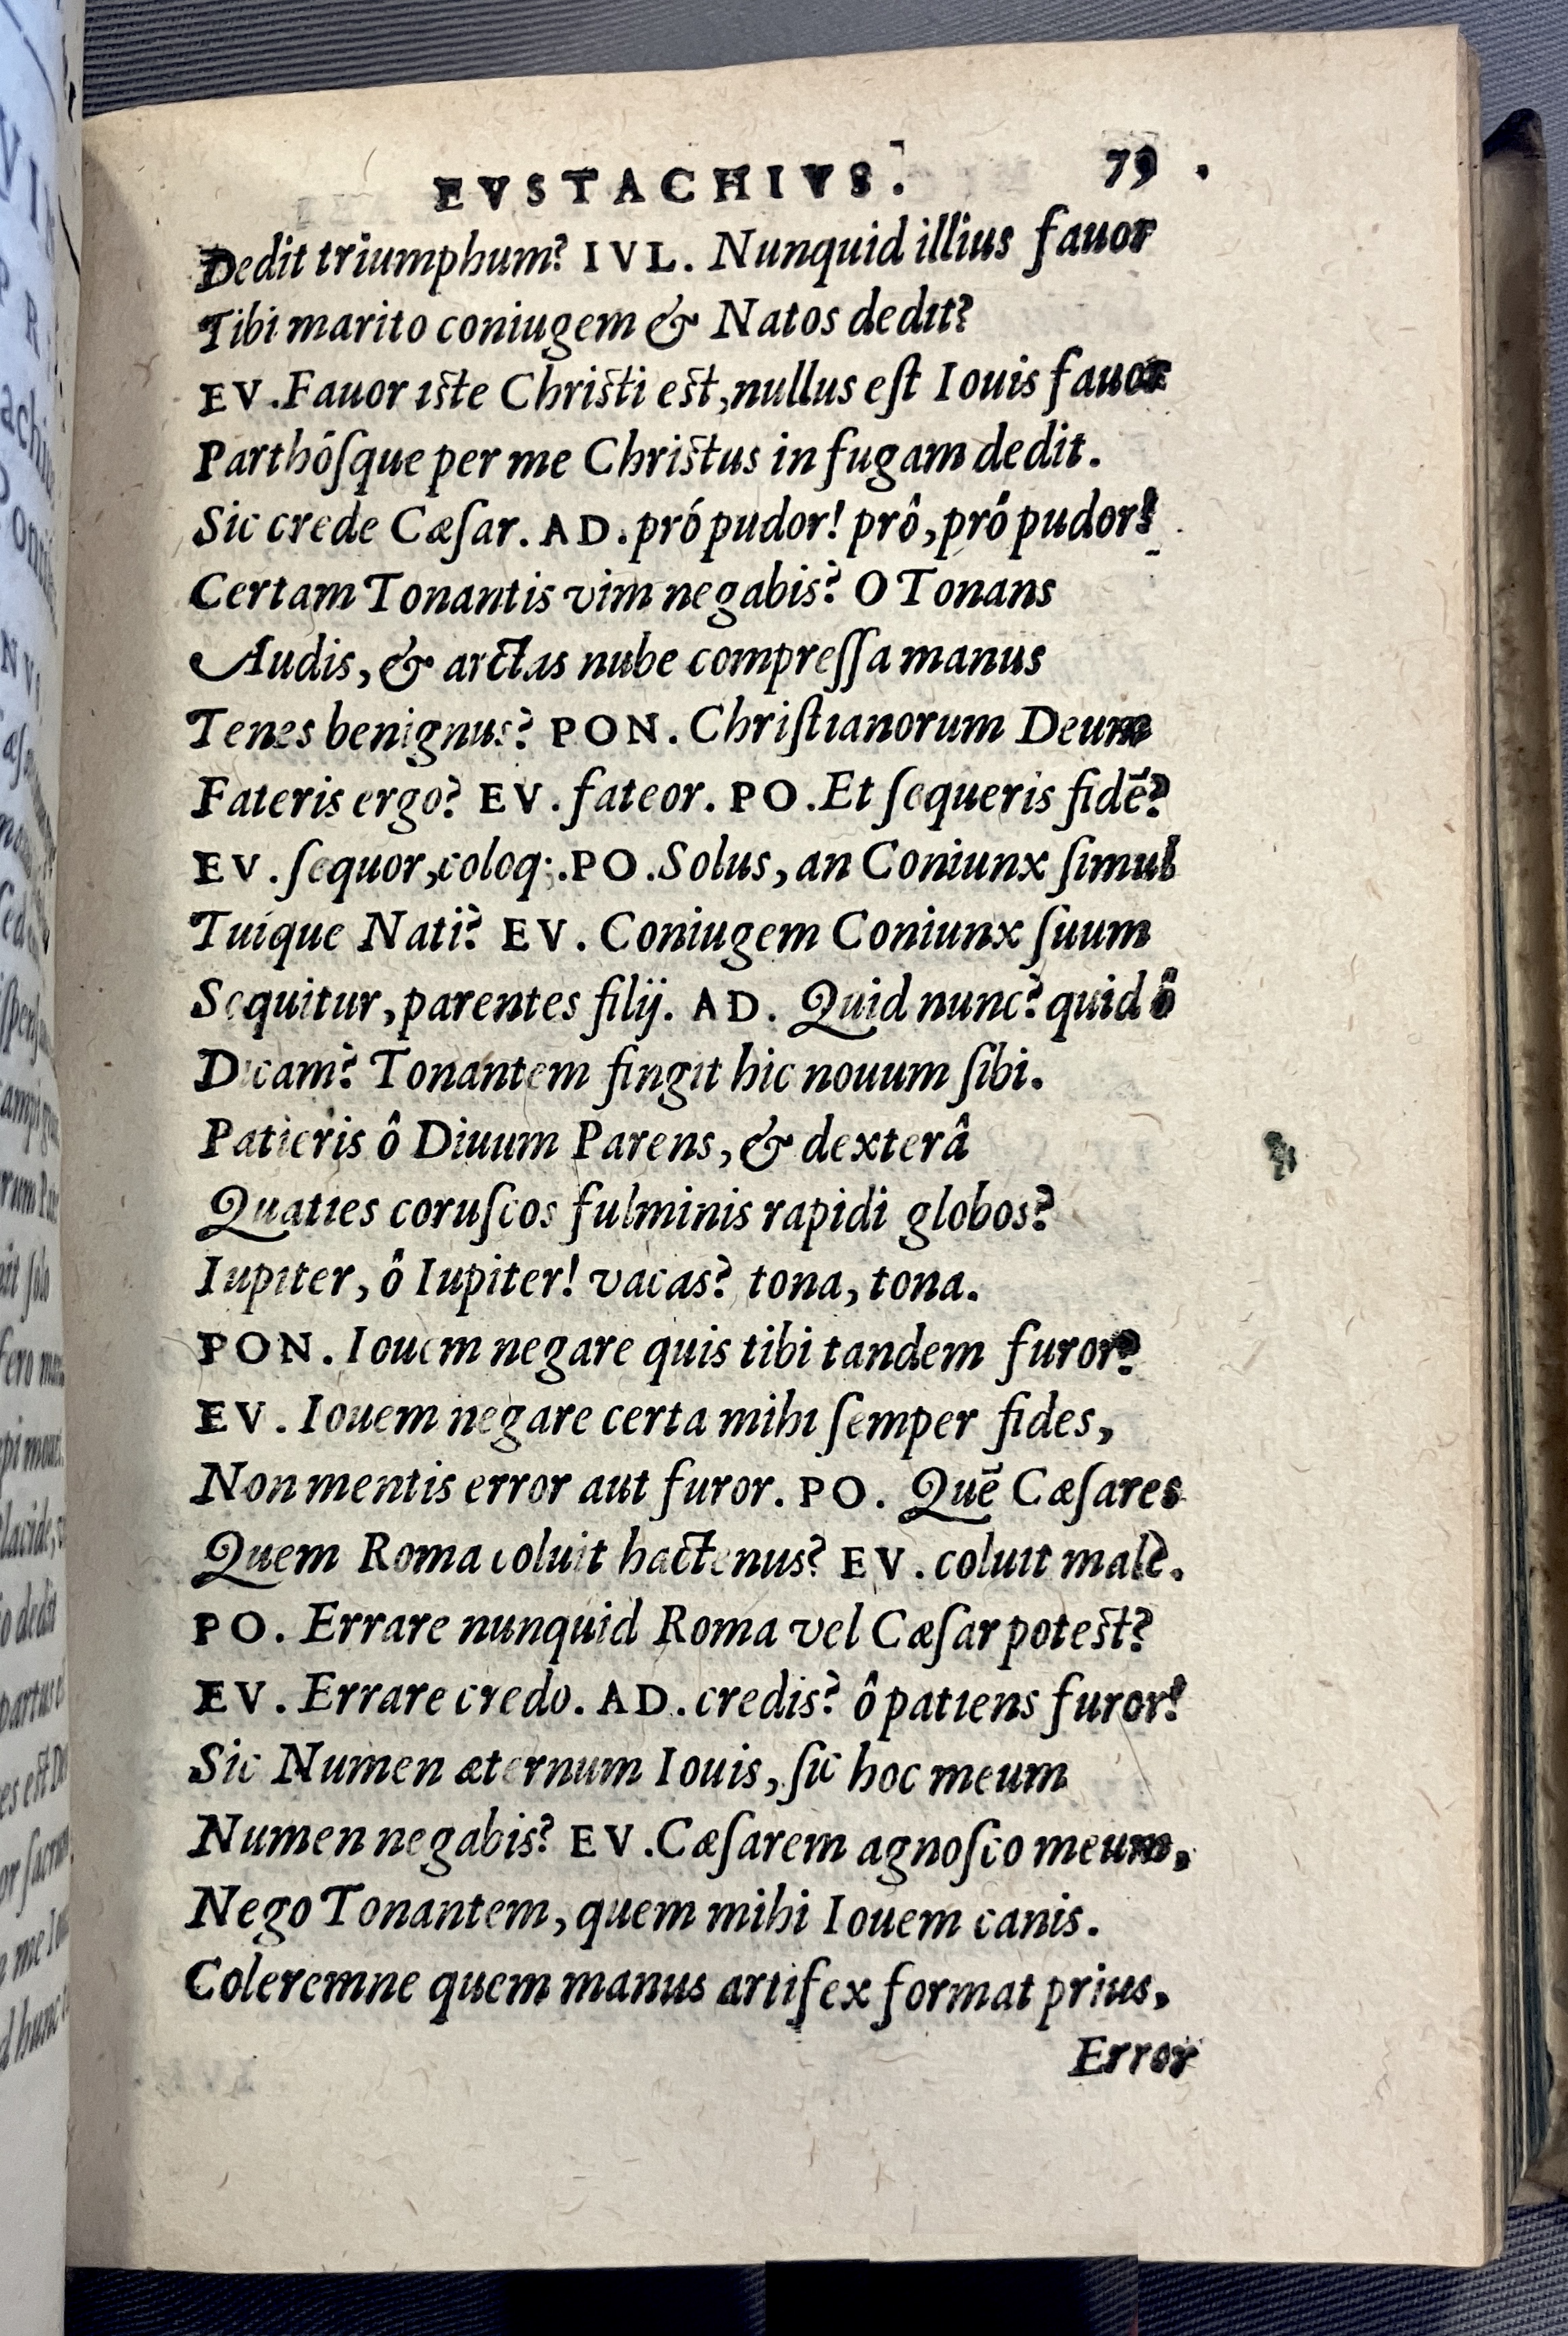 EVSTACHIVS. 79
Dedit triumphum? IVL. Nunquid illius fauor
Tibi marito coniugem & Natos dedit?
EV. Fauor iste Christi est, nullus est Iouis fauor
Parthósque per me Christus in fugam dedit.
Sic crede Cæsar. AD. pró pudor! prô, prô pudor!
Certam Tonantis vim negabis? O Tonans
Audis, & arctas nube compressa manus
Tenes benignus? PON. Christianorum Deum
Fateris ergo? EV. fateor. PO. Et sequeris fidē?
EV. sequor, coloq;. PO. Solus, an Coniunx simul
Tuíque Nati? EV. Coniugem Coniunx suum
Sequitur, parentes filij. AD. Quid nunc? quid ô
Dicam? Tonantem fingit hic nouum sibi.
Patieris ô Diuum Parens, & dexterâ
Quaties coruscos fulminis rapidi globos?
Iupiter, ô Iupiter! vacas? tona, tona.
PON. Iouem negare quis tibi tandem furor?
EV. Iouem negare certa mihi semper fides,
Non mentis error aut furor. PO. Quē Cæsares
Quem Roma coluit hactenus? EV. coluit malè.
PO. Errare nunquid Roma vel Cæsar potest?
EV. Errare credo. AD. credis? ô patiens furor!
Sic Numen æternum Iouis, sic hoc meum
Numen negabis? EV. Cæsarem agnosco meum,
Nego Tonantem, quem mihi Iouem canis.
Coleremne quem manus artifex format prius,
Error